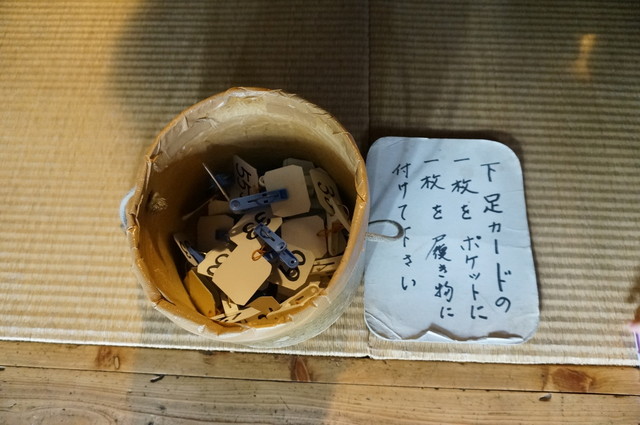 下足カードの
一枚をポケットに
一枚を履き物に
付けて下さい
55
3